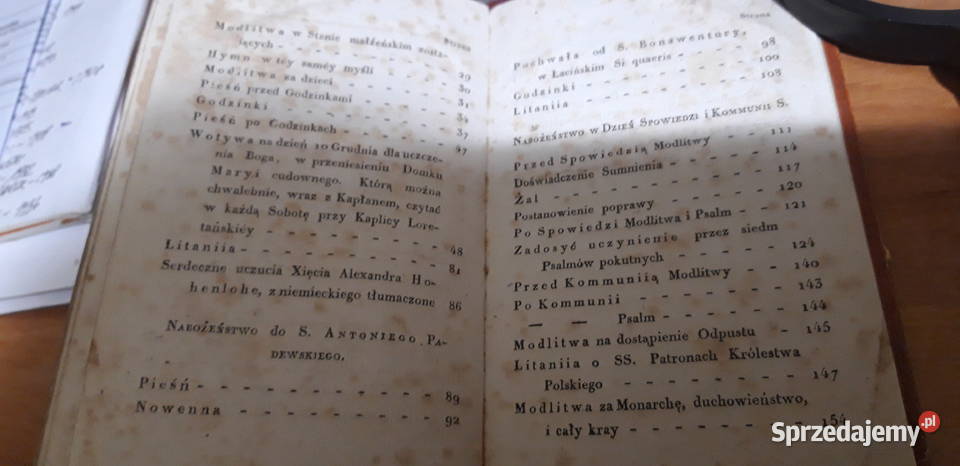 Strona
Modlitwa w Stanie małżeńskim zosta-
iących - - - - - - - 29
Hymn w téy saméy myśli - - - - 30
Modlitwa za dzieci - - - - - 31
Pieśń przed Godzinkami - - - - 34
Godzinki - - - - - - - 37
Pieśń po Godzinkach - - - - - 47
Wotywa na dzień 10 Grudnia dla uczcze-
nia Boga, w przeniesieniu Domku
Maryi cudownego. Którą można
chwalebnie, wraz z Kapłanem, czytać
w każdą Sobotę przy Kaplicy Lore-
tańskiéy - - - - - - - 48
Litaniia - - - - - - - - 81
Serdeczne uczucia Xięcia Alexandra Ho-
henlohe, z niemieckiego tłumaczone 86
Nabożeństwo do S. Antoniego Pa-
dewskiego.
Pieśń - - - - - - - - - 89
Nowenna - - - - - - - - 92
Strona
Pochwała od S. Bonawentury,
w Łacińskim Si quaeris - - - - 98
Godzinki - - - - - - - - 100
Litaniia - - - - - - - - 108
Nabożeństwo w Dzień Spowiedzi i Kommunii S.
Przed Spowiedzią Modlitwy - - - 111
Doświadczenie Sumnienia - - - - 114
Żal - - - - - - - - - 117
Postanowienie poprawy - - - - 120
Po Spowiedzi Modlitwa i Psalm - - 121
Zadosyć uczynienie przez siedm
Psalmów pokutnych - - - - 124
Przed Kommuniią Modlitwy - - - 140
Po Kommunii - - - - - - 143
— — Psalm - - - - - 144
Modlitwa na dostąpienie Odpustu - 145
Litaniia o SS. Patronach Królestwa
Polskiego - - - - - - - - 147
Modlitwa za Monarchę, duchowieństwo,
i cały kray - - - - - - - 154
Sprzedajemy.pl